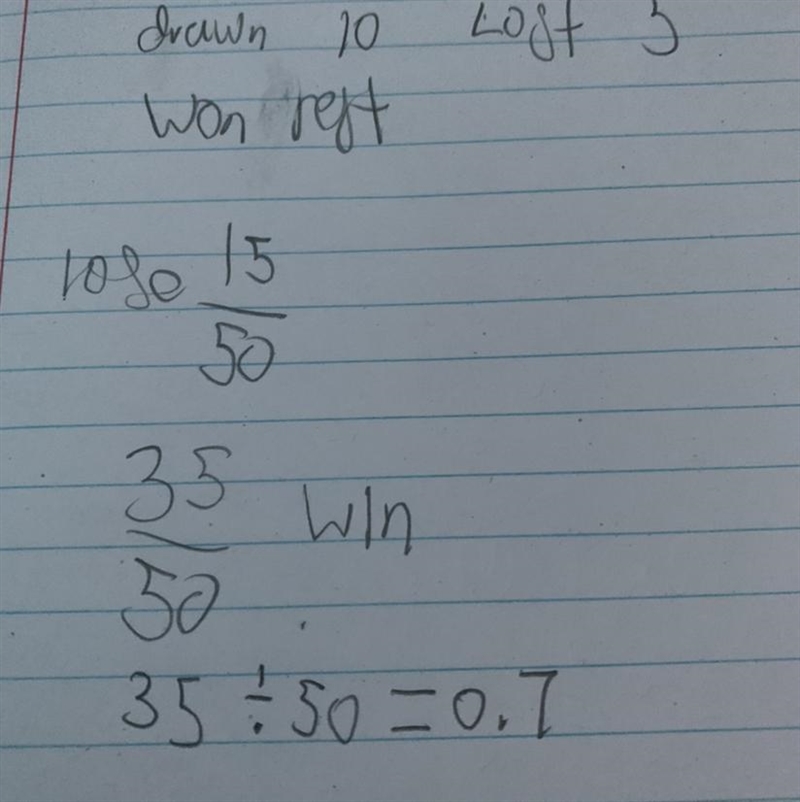 drawn 10 Lost 5
Won rest
lose 15
50
35
50 Win
35 ÷ 50 = 0.7